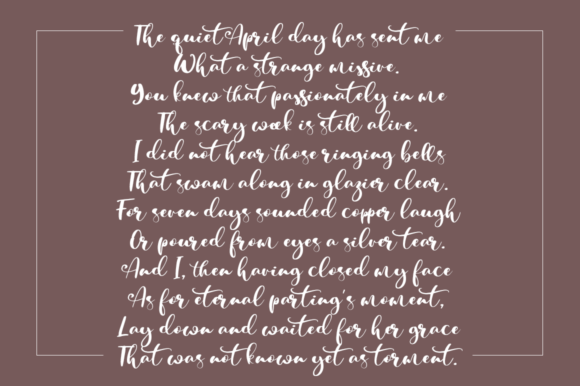 The quiet April day has sent me
What a strange missive.
You knew that passionately in me
The scary week is still alive.
I did not hear those ringing bells
That swam along in glazier clear.
For seven days sounded copper laugh
Or poured from eyes a silver tear.
And I, then having closed my face
As for eternal parting's moment,
Lay down and waited for her grace
That was not known yet as torment.